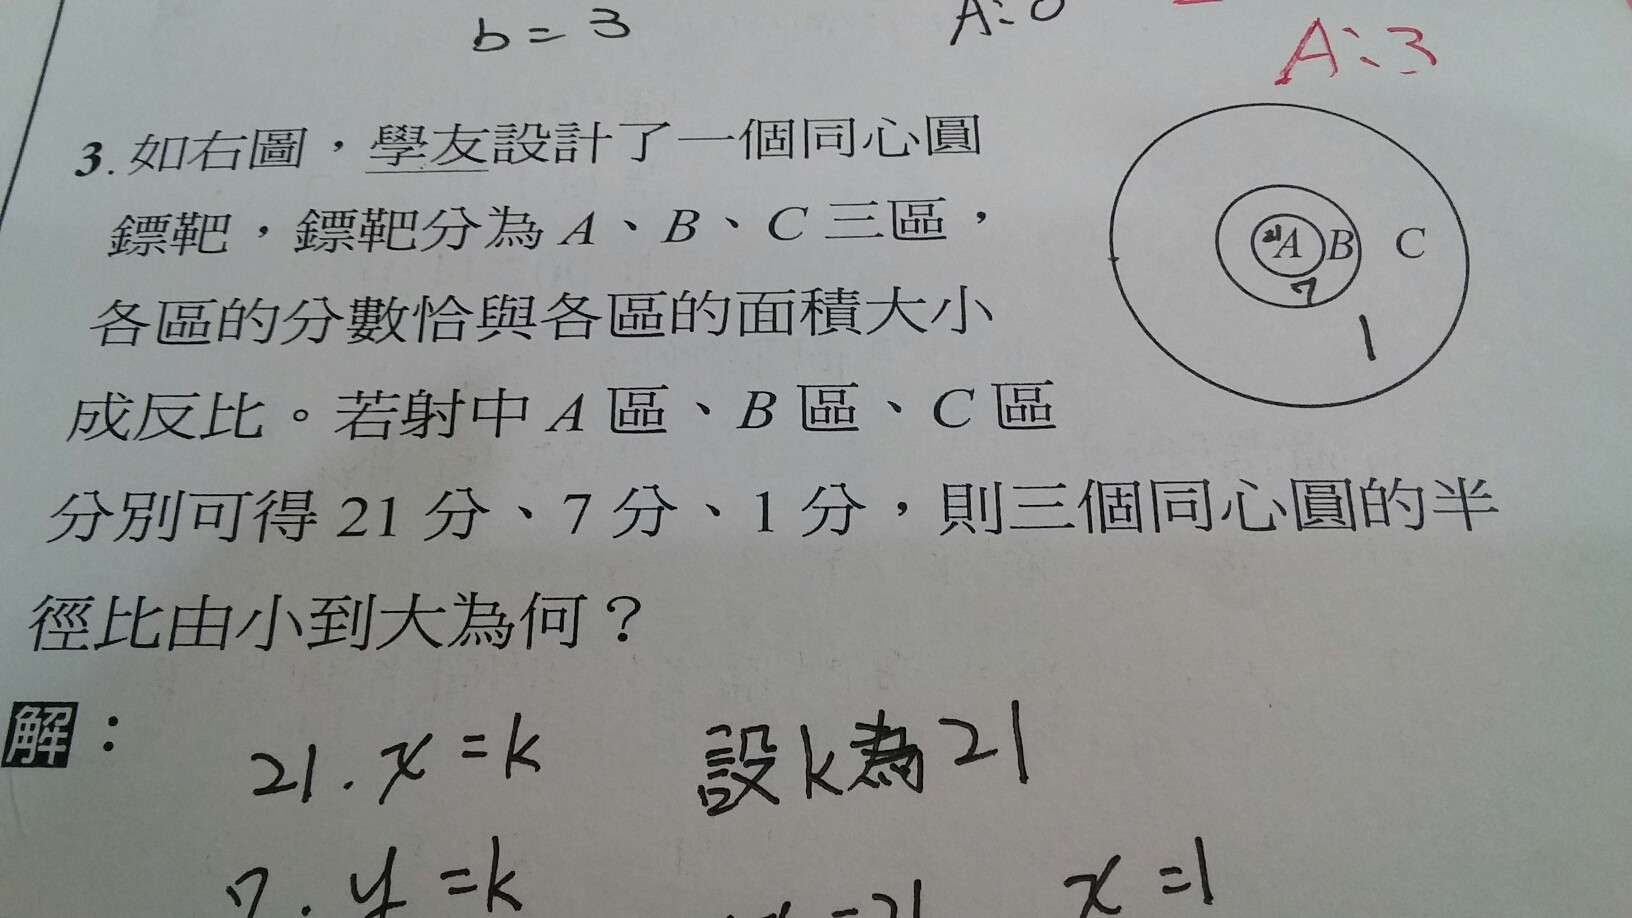 b = 3
A:
A:3
3.如右圖，學友設計了一個同心圓
鏢靶，鏢靶分為 A、B、C 三區，
各區的分數恰與各區的面積大小
成反比。若射中 A 區、B 區、C 區
分別可得 21 分、7 分、1 分，則三個同心圓的半
徑比由小到大為何？
21 A B C
7
1
解：
21.x=k 設k為21
7.y=k =21 x=1